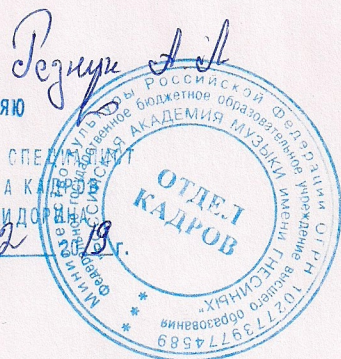 Резнук А. Л
ЯЮ
СПЕЦИАЛИСТ
А КАДРОВ
ИДОРИНА
2 2019 г.
Министерство культуры Российской Федерации ОГРН 1027739774589
федеральное государственное бюджетное образовательное учреждение высшего образования
"РОССИЙСКАЯ АКАДЕМИЯ МУЗЫКИ имени ГНЕСИНЫХ"
ОТДЕЛ
КАДРОВ
* * *